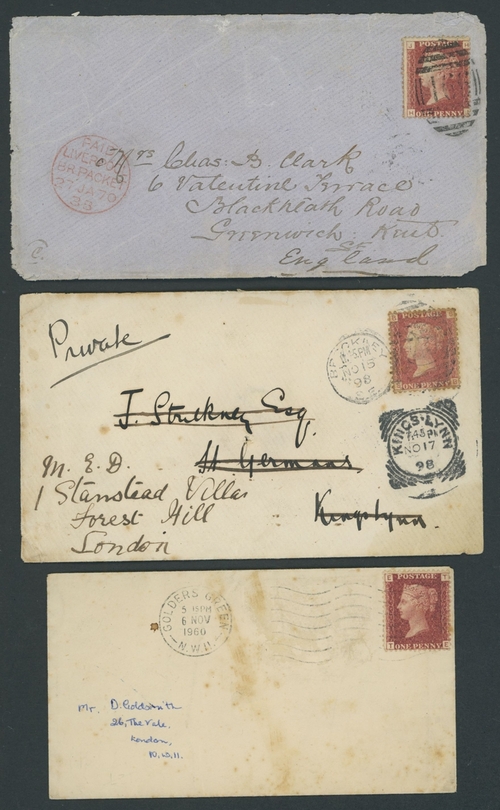 POSTAGE
ONE PENNY
PAID
LIVERPOOL
BR. PACKET
27 JA 70
Mrs Chas. B. Clark
6 Valentine Terrace
Blackheath Road
Greenwich Kent
England
POSTAGE
ONE PENNY
Private
NO 15
98
S.E.
KINGS-LYNN
7.45 PM
NO 17
98
J. Stuckney Esq.
St. Germans
Kings Lynn.
M. E. D.
1 Stanstead Villas
Forest Hill
London
GOLDERS GREEN
6 NOV
1960
N.W.11.
C POSTAGE T
T ONE PENNY C
Mr. D. Goldsmith
26, The Vale,
London,
N.W.11.